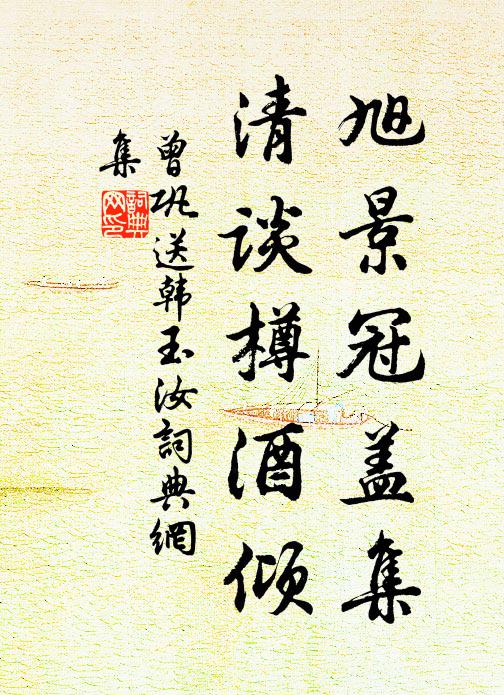 旭景冠盖集
清谈樽酒倾
曾巩送韩玉汝詞典網
集
詞典網印